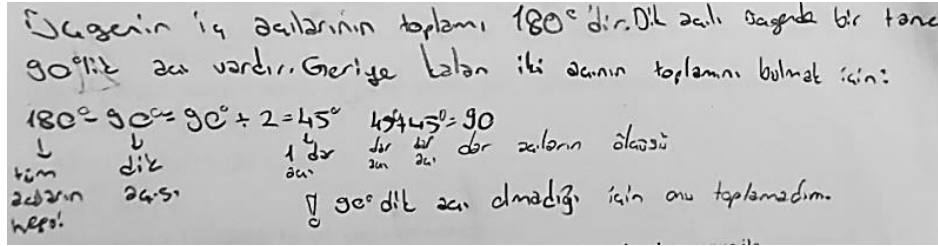 Üçgenin iç açılarının toplamı 180° 'dir. Dik açılı üçgende bir tane
90°lik açı vardır. Geriye kalan iki açının toplamını bulmak için:
180° - 90° = 90° ÷ 2 = 45° 45+45° = 90
↓ ↓ ↓ dar dar dar açıların ölçüsü
tüm dik 1 dar açı açı
açıların açısı açı
hepsi ! 90° dik açı olmadığı için onu toplamadım.